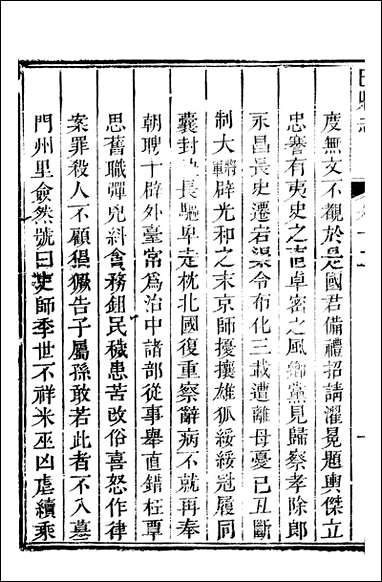 度無文不觀於是國君備禮招請濯冕題輿傑立
忠謇有夷史之直卓密之風鄉黨見歸察孝除郎
永昌長史遷宕渠令布化三載遭離母憂已丑斷
制大將軍辟光和之末京師擾攘雄狐綏綏冠履同
囊封長驅卑走枕北國復重察辭病不就再奉
朝聘十辟外臺常爲治中諸部從事舉直錯枉覃
思舊職彈兇糾貪務鉏民穢患苦改俗喜怒作律
案罪殺人不顧猖獗告子屬孫敢若此者不入墓
門州里僉然號曰吏師季世不祥米巫凶虐續乘